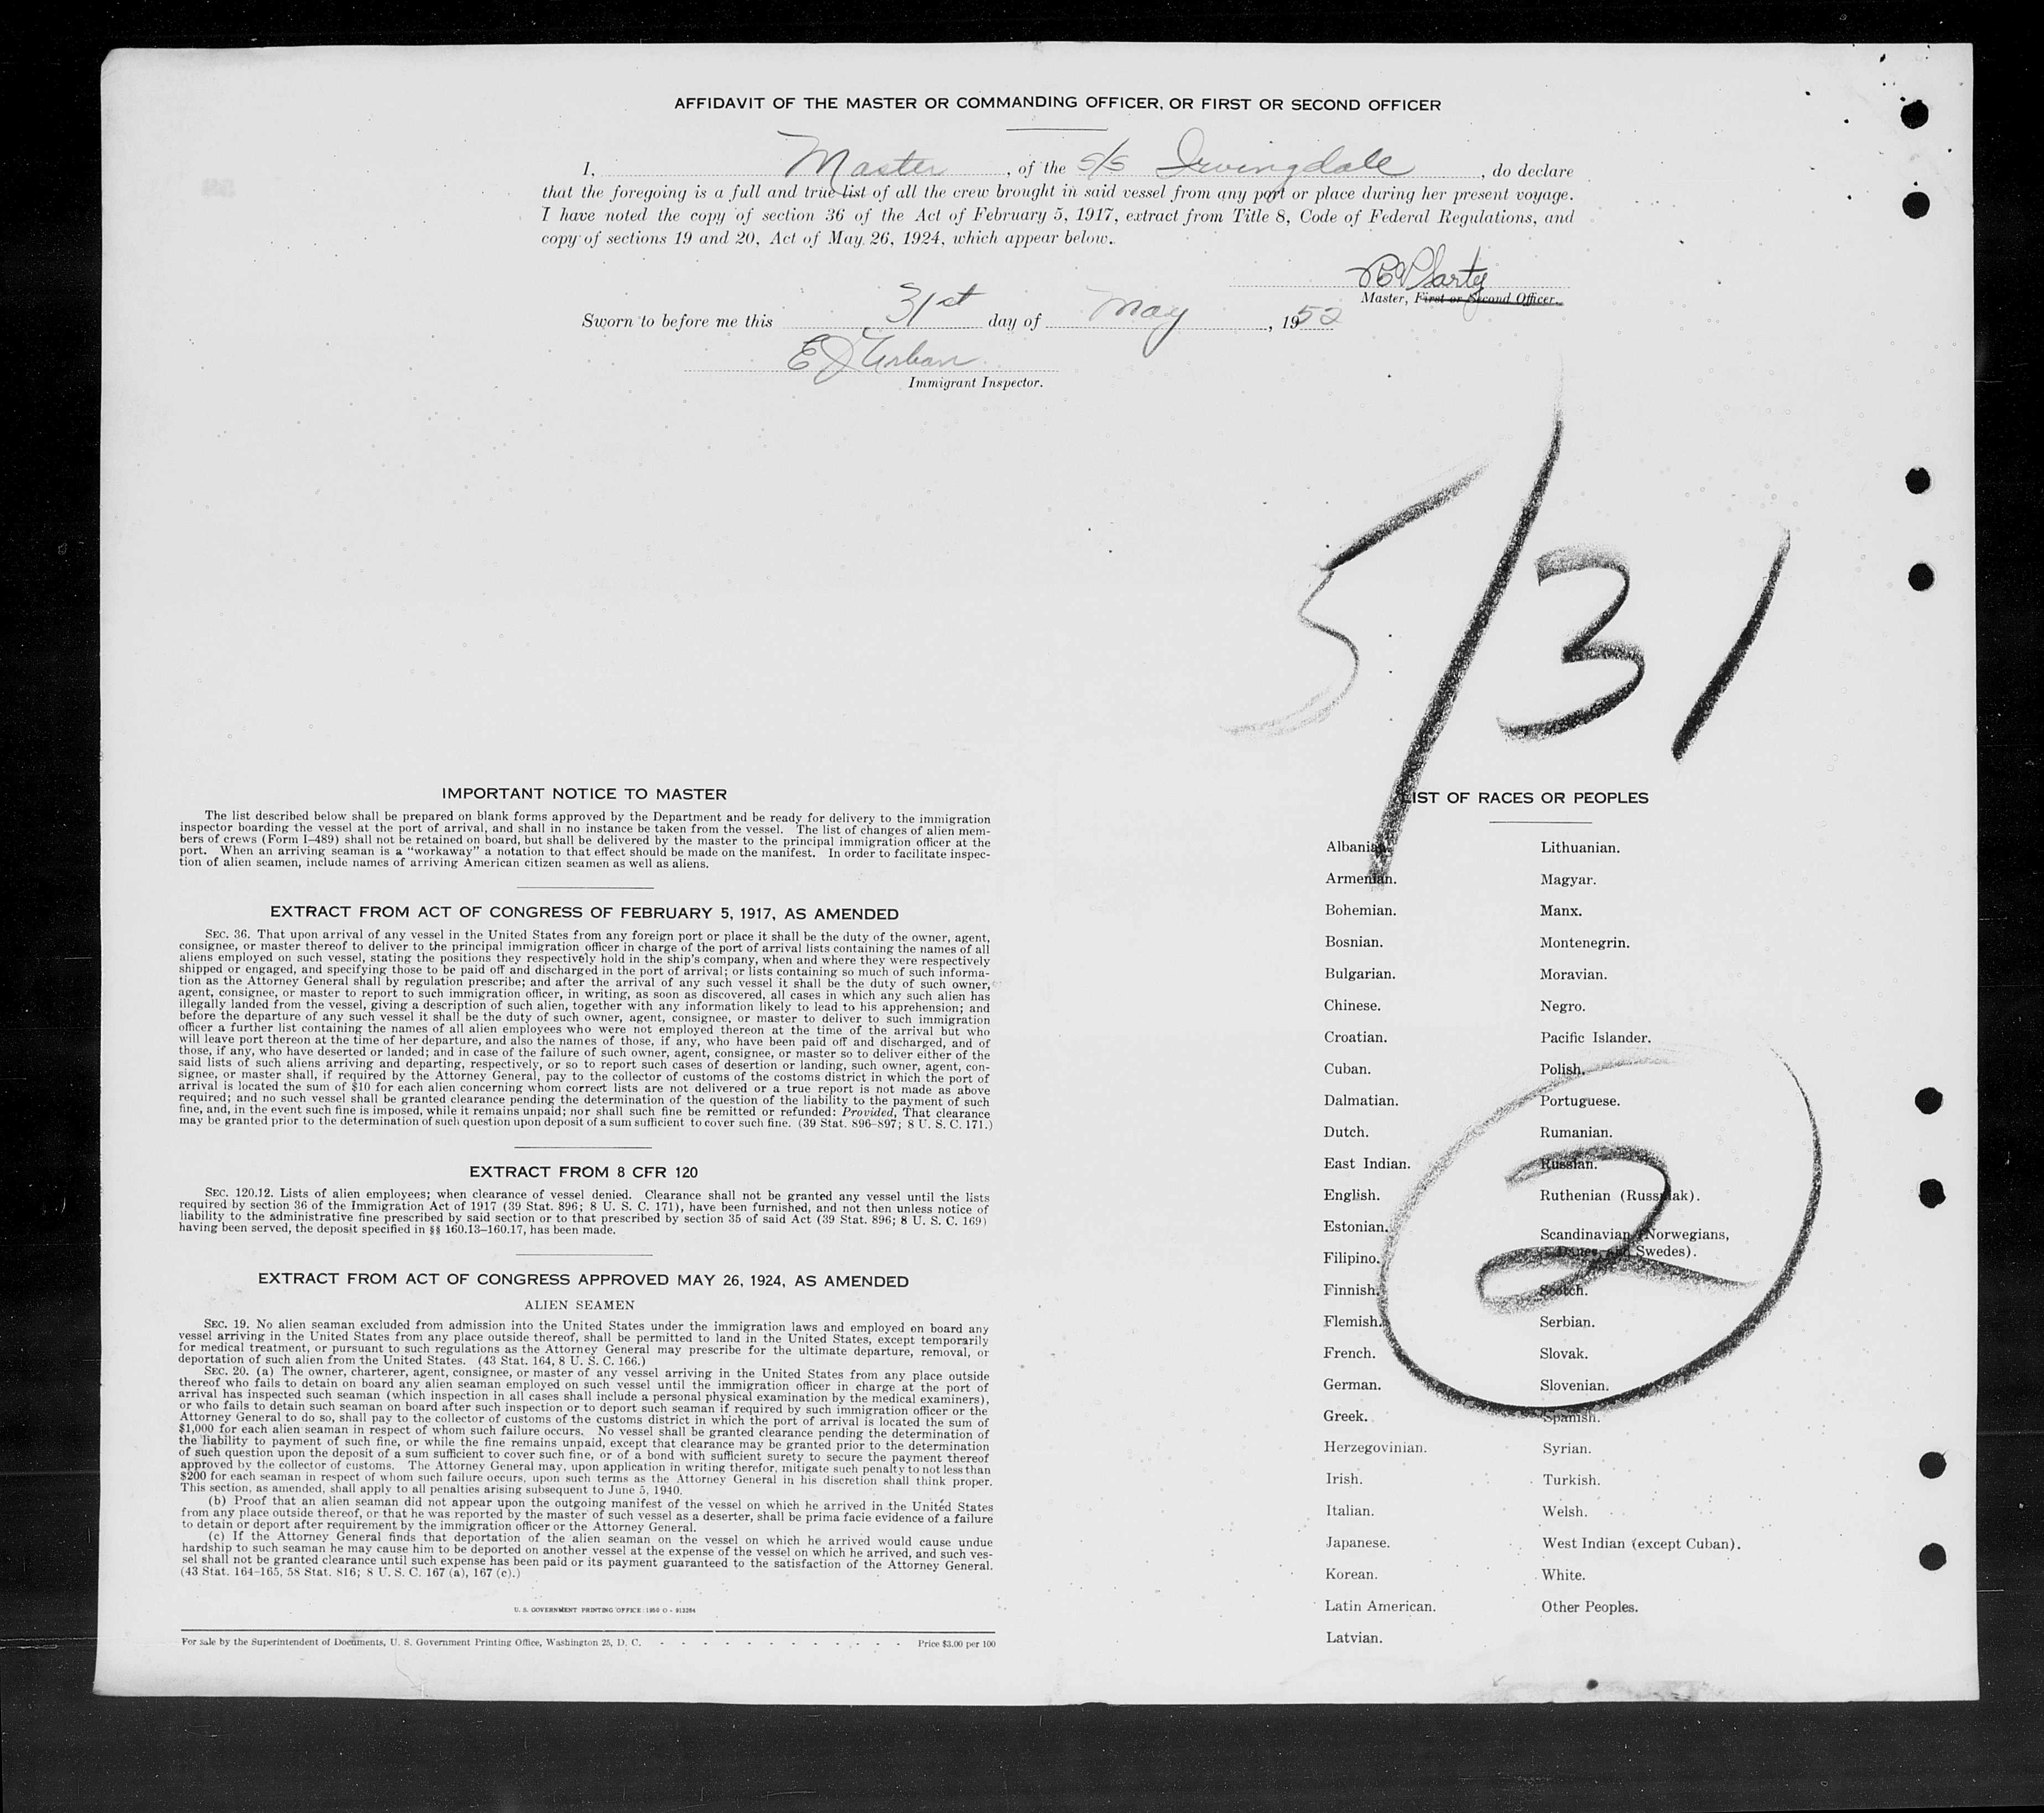 AFFIDAVIT OF THE MASTER OR COMMANDING OFFICER, OR FIRST OR SECOND OFFICER
I, Master, of the S/S Irvingdale, do declare
that the foregoing is a full and true list of all the crew brought in said vessel from any port or place during her present voyage.
I have noted the copy of section 36 of the Act of February 5, 1917, extract from Title 8, Code of Federal Regulations, and
copy of sections 19 and 20, Act of May 26, 1924, which appear below.
Master, First or Second Officer.
Sworn to before me this 31st day of May, 1952
E J Urban
Immigrant Inspector.
5/31
IMPORTANT NOTICE TO MASTER
The list described below shall be prepared on blank forms approved by the Department and be ready for delivery to the immigration
inspector boarding the vessel at the port of arrival, and shall in no instance be taken from the vessel. The list of changes of alien mem-
bers of crews (Form I–489) shall not be retained on board, but shall be delivered by the master to the principal immigration officer at the
port. When an arriving seaman is a "workaway" a notation to that effect should be made on the manifest. In order to facilitate inspec-
tion of alien seamen, include names of arriving American citizen seamen as well as aliens.
EXTRACT FROM ACT OF CONGRESS OF FEBRUARY 5, 1917, AS AMENDED
SEC. 36. That upon arrival of any vessel in the United States from any foreign port or place it shall be the duty of the owner, agent,
consignee, or master thereof to deliver to the principal immigration officer in charge of the port of arrival lists containing the names of all
aliens employed on such vessel, stating the positions they respectively hold in the ship's company, when and where they were respectively
shipped or engaged, and specifying those to be paid off and discharged in the port of arrival; or lists containing so much of such informa-
tion as the Attorney General shall by regulation prescribe; and after the arrival of any such vessel it shall be the duty of such owner,
agent, consignee, or master to report to such immigration officer, in writing, as soon as discovered, all cases in which any such alien has
illegally landed from the vessel, giving a description of such alien, together with any information likely to lead to his apprehension; and
before the departure of any such vessel it shall be the duty of such owner, agent, consignee, or master to deliver to such immigration
officer a further list containing the names of all alien employees who were not employed thereon at the time of the arrival but who
will leave port thereon at the time of her departure, and also the names of those, if any, who have been paid off and discharged, and of
those, if any, who have deserted or landed; and in case of the failure of such owner, agent, consignee, or master so to deliver either of the
said lists of such aliens arriving and departing, respectively, or so to report such cases of desertion or landing, such owner, agent, con-
signee, or master shall, if required by the Attorney General, pay to the collector of customs of the costoms district in which the port of
arrival is located the sum of $10 for each alien concerning whom correct lists are not delivered or a true report is not made as above
required; and no such vessel shall be granted clearance pending the determination of the question of the liability to the payment of such
fine, and, in the event such fine is imposed, while it remains unpaid; nor shall such fine be remitted or refunded: Provided, That clearance
may be granted prior to the determination of such question upon deposit of a sum sufficient to cover such fine. (39 Stat. 896–897; 8 U. S. C. 171.)
EXTRACT FROM 8 CFR 120
SEC. 120.12. Lists of alien employees; when clearance of vessel denied. Clearance shall not be granted any vessel until the lists
required by section 36 of the Immigration Act of 1917 (39 Stat. 896; 8 U. S. C. 171), have been furnished, and not then unless notice of
liability to the administrative fine prescribed by said section or to that prescribed by section 35 of said Act (39 Stat. 896; 8 U. S. C. 169)
having been served, the deposit specified in §§ 160.13–160.17, has been made.
EXTRACT FROM ACT OF CONGRESS APPROVED MAY 26, 1924, AS AMENDED
ALIEN SEAMEN
SEC. 19. No alien seaman excluded from admission into the United States under the immigration laws and employed on board any
vessel arriving in the United States from any place outside thereof, shall be permitted to land in the United States, except temporarily
for medical treatment, or pursuant to such regulations as the Attorney General may prescribe for the ultimate departure, removal, or
deportation of such alien from the United States. (43 Stat. 164, 8 U. S. C. 166.)
SEC. 20. (a) The owner, charterer, agent, consignee, or master of any vessel arriving in the United States from any place outside
thereof who fails to detain on board any alien seaman employed on such vessel until the immigration officer in charge at the port of
arrival has inspected such seaman (which inspection in all cases shall include a personal physical examination by the medical examiners),
or who fails to detain such seaman on board after such inspection or to deport such seaman if required by such immigration officer or the
Attorney General to do so, shall pay to the collector of customs of the customs district in which the port of arrival is located the sum of
$1,000 for each alien seaman in respect of whom such failure occurs. No vessel shall be granted clearance pending the determination of
the liability to payment of such fine, or while the fine remains unpaid, except that clearance may be granted prior to the determination
of such question upon the deposit of a sum sufficient to cover such fine, or of a bond with sufficient surety to secure the payment thereof
approved by the collector of customs. The Attorney General may, upon application in writing therefor, mitigate such penalty to not less than
$200 for each seaman in respect of whom such failure occurs, upon such terms as the Attorney General in his discretion shall think proper.
This section, as amended, shall apply to all penalties arising subsequent to June 5, 1940.
(b) Proof that an alien seaman did not appear upon the outgoing manifest of the vessel on which he arrived in the United States
from any place outside thereof, or that he was reported by the master of such vessel as a deserter, shall be prima facie evidence of a failure
to detain or deport after requirement by the immigration officer or the Attorney General.
(c) If the Attorney General finds that deportation of the alien seaman on the vessel on which he arrived would cause undue
hardship to such seaman he may cause him to be deported on another vessel at the expense of the vessel on which he arrived, and such ves-
sel shall not be granted clearance until such expense has been paid or its payment guaranteed to the satisfaction of the Attorney General.
(43 Stat. 164–165, 58 Stat. 816; 8 U. S. C. 167 (a), 167 (c).)
U. S. GOVERNMENT PRINTING OFFICE : 1950 O - 913284
For sale by the Superintendent of Documents, U. S. Government Printing Office, Washington 25, D. C. - - - - - - - - - - - - Price $3.00 per 100
LIST OF RACES OR PEOPLES
Albanian.
Armenian.
Bohemian.
Bosnian.
Bulgarian.
Chinese.
Croatian.
Cuban.
Dalmatian.
Dutch.
East Indian.
English.
Estonian.
Filipino.
Finnish.
Flemish.
French.
German.
Greek.
Herzegovinian.
Irish.
Italian.
Japanese.
Korean.
Latin American.
Latvian.
Lithuanian.
Magyar.
Manx.
Montenegrin.
Moravian.
Negro.
Pacific Islander.
Polish.
Portuguese.
Rumanian.
Russian.
Ruthenian (Russniak).
Scandinavian (Norwegians,
Danes, and Swedes).
Scotch.
Serbian.
Slovak.
Slovenian.
Spanish.
Syrian.
Turkish.
Welsh.
West Indian (except Cuban).
White.
Other Peoples.
2